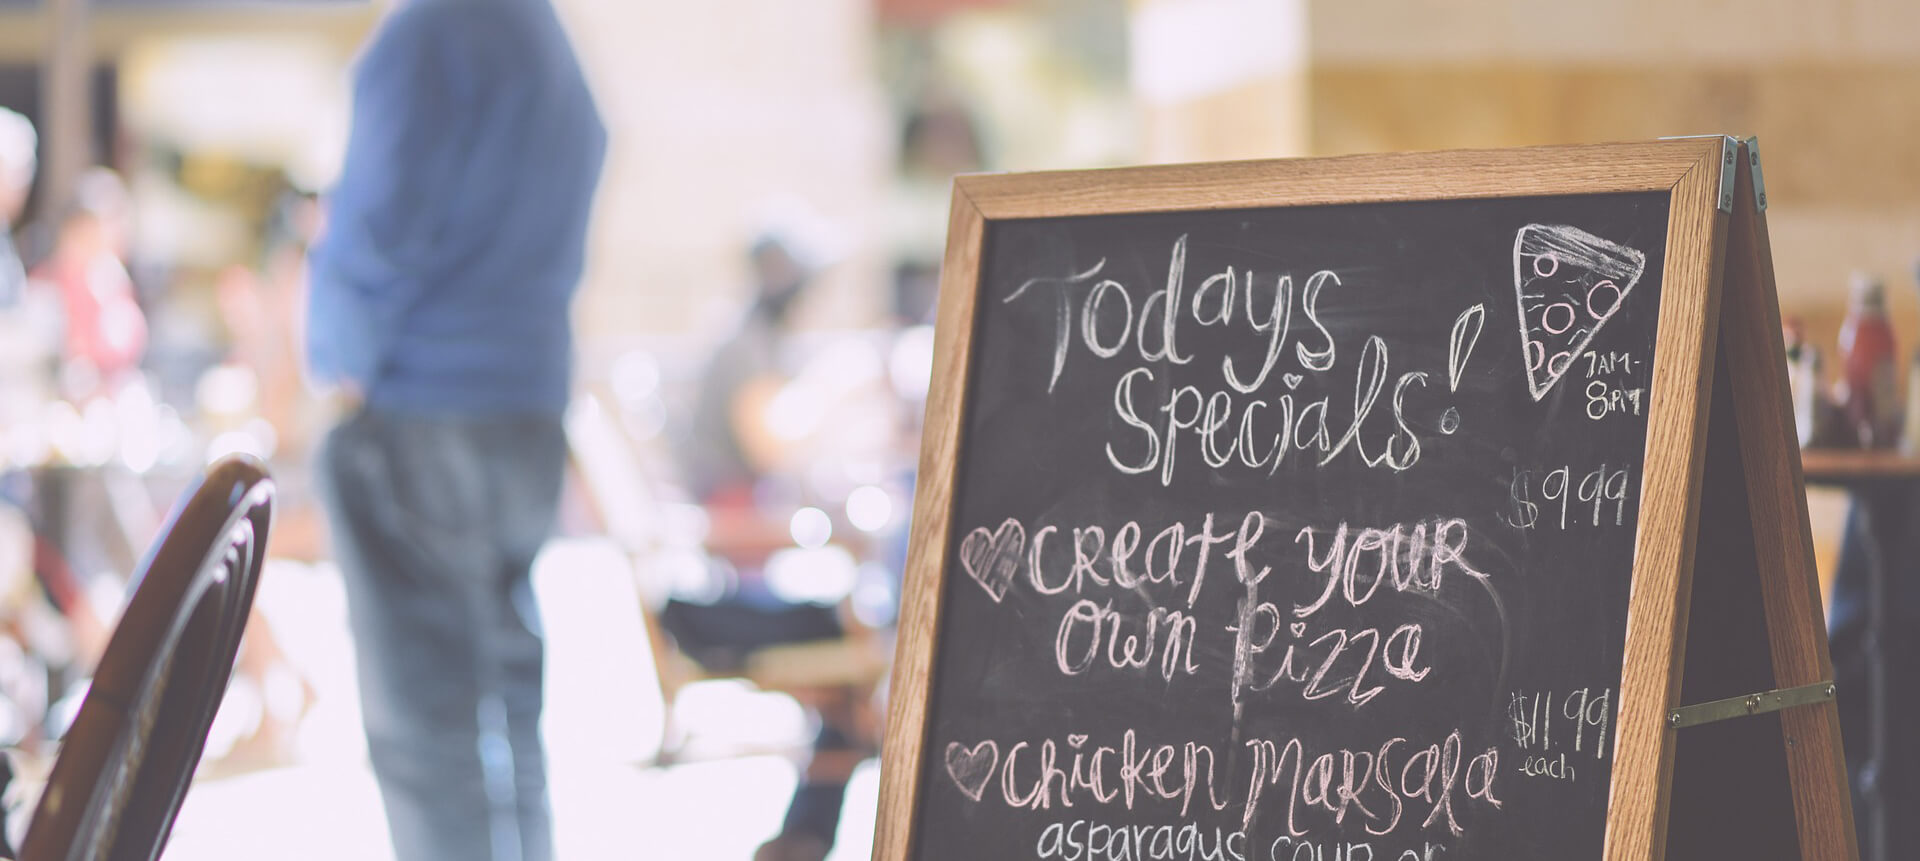 Todays
Specials!
7AM-
8PM
$9.99
CReate youR
Own Pizza
$11.99
each
Chicken MaRsala
asparagus soup or